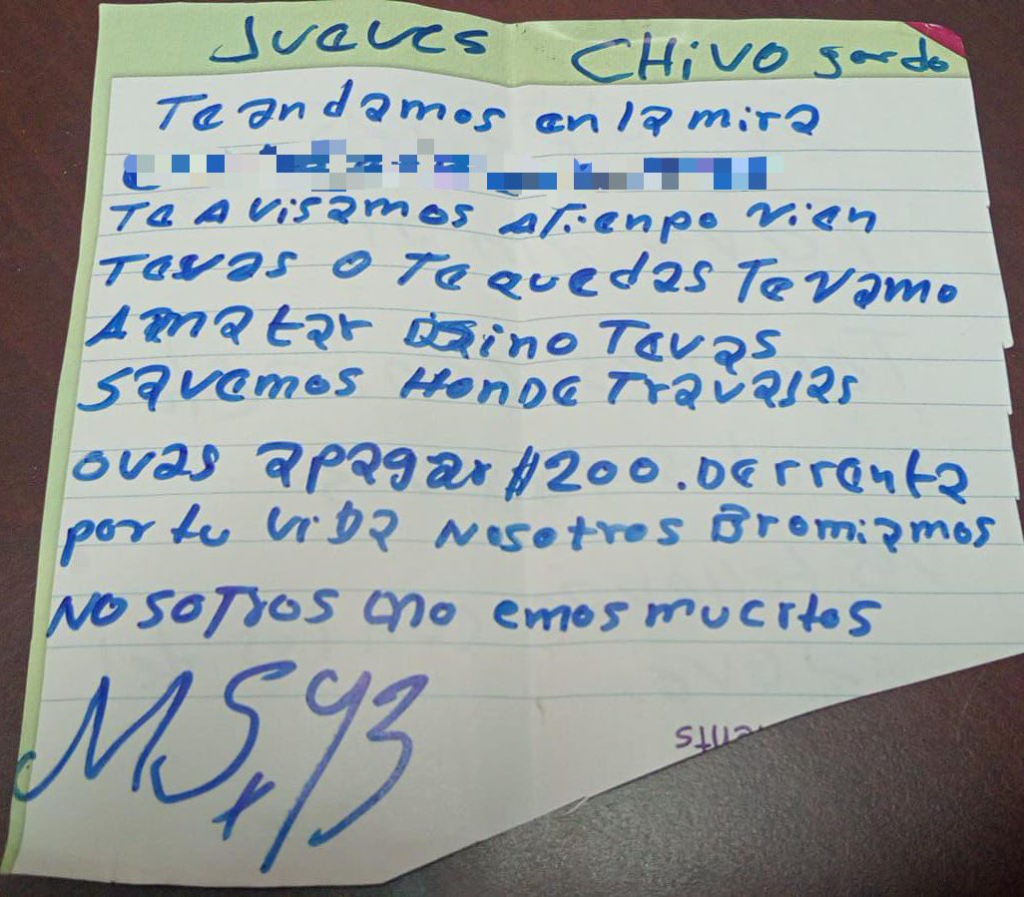 Jueves CHIVO gordo
Te andamos en la mira
Te Avisamos ATienpo vien
Tevas o Te quedas Te vamo
Amatar sino Tevas
Savemos HonDe Travajas
ovas apagar $200. De rrenta
por tu viDa Nosotros Bromiamos
NosoTros no emos muertos
MS y 93
ents